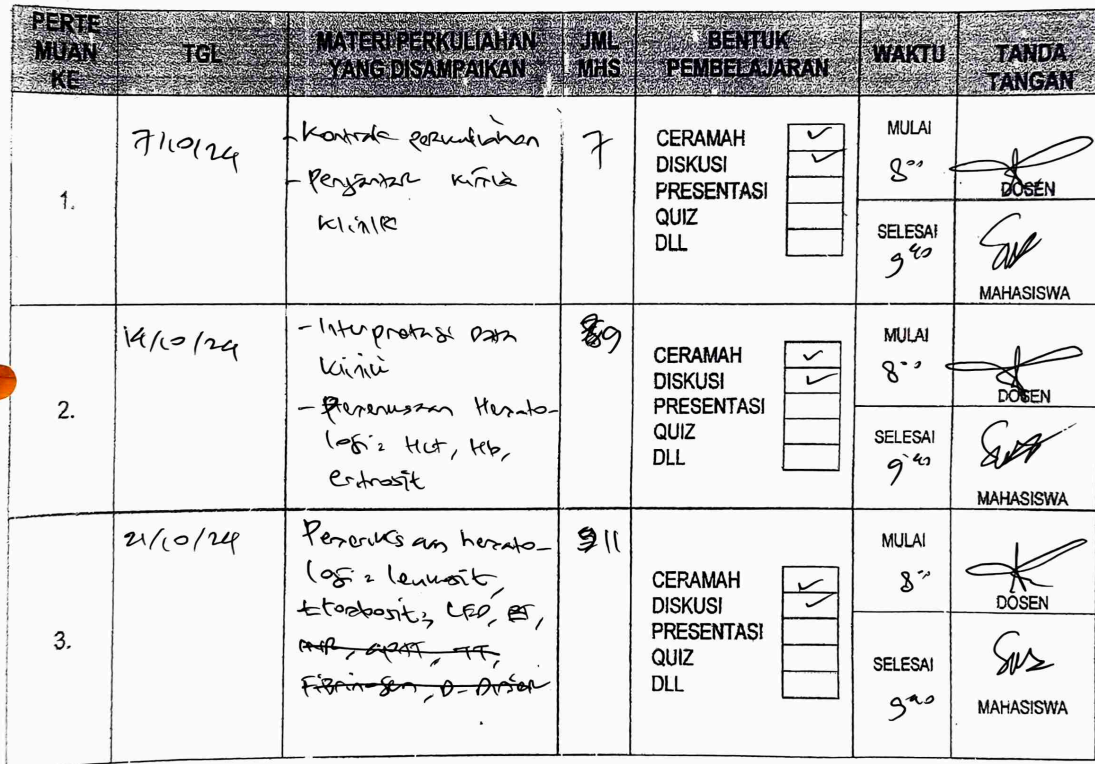 PERTE
MUAN
KE
TGL
MATERI PERKULIAHAN
YANG DISAMPAIKAN
JML
MHS
BENTUK
PEMBELAJARAN
WAKTU
TANDA
TANGAN
1.
7/10/24
- Kontrak perkuliahan
- Pengantar kimia
klinik
7
CERAMAH ✓
DISKUSI ✓
PRESENTASI
QUIZ
DLL
MULAI
8⁰⁰
DOSEN
SELESAI
9⁴⁰
MAHASISWA
2.
14/10/24
- Interpretasi Data
klinik
- Pemeriksaan Hemato-
logi : Hct, Hb,
eritrosit
9
CERAMAH ✓
DISKUSI ✓
PRESENTASI
QUIZ
DLL
MULAI
8⁰⁰
DOSEN
SELESAI
9⁴⁰
MAHASISWA
3.
21/10/24
Pemeriksaan hemato-
logi : leukosit,
trombosit, LED,
Fibrinogen, D-Dimer
11
CERAMAH ✓
DISKUSI ✓
PRESENTASI
QUIZ
DLL
MULAI
8⁰⁰
DOSEN
SELESAI
9⁴⁰
MAHASISWA